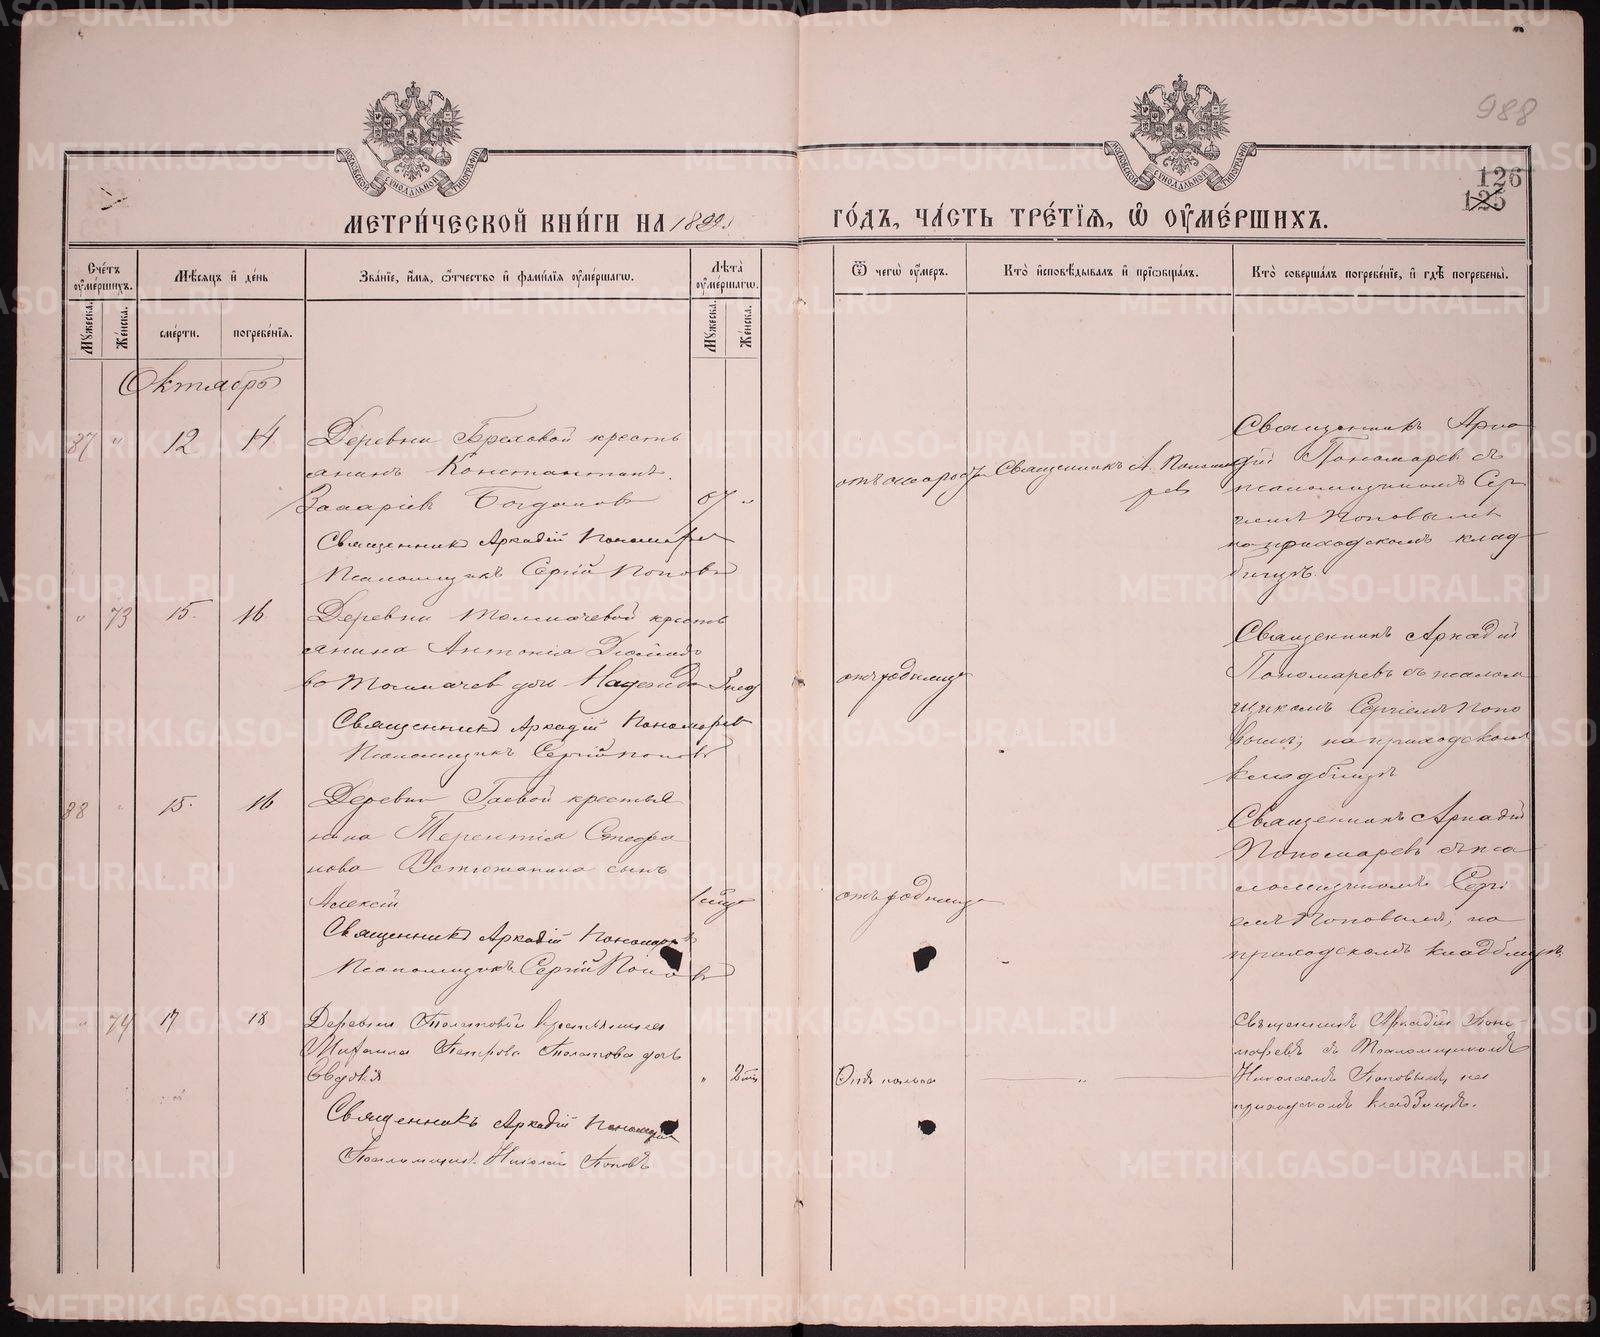 988
126
125
МЕТРИ́ЧЕСКОЙ КНИ́ГИ НА 1899
ГО́ДЪ, ЧА́СТЬ ТРЕ́ТІЯ, Ѡ ОУМЕ́РШИХЪ.
Сче́тъ оуме́ршихъ.
Мꙋ́жеска.
Же́нска.
Мѣ́сяцъ и де́нь
сме́рти.
погребе́нїя.
Зва́нїе, и́мя, ѻ́тчество и фами́лїя оуме́ршагѡ.
Лѣта̀ оуме́ршагѡ.
Мꙋ́жеска.
Же́нска.
Ѿ чегѡ̀ оу́меръ.
Кто̀ исповѣ́дывалъ и прїѡбща́лъ.
Кто̀ соверша́лъ погребе́нїе, и гдѣ̀ погребены̀.
Октябрь
87 " 12 14
Деревни Бреховой кресть
янинъ Константинъ
Захаріевъ Богдановъ 67 "
Священникъ Аркадій Пономаревъ
Псаломщикъ Сергій Поповъ
отъ старости
Священникъ А. Понома
ревъ
Священникъ Арка
дій Пономаревъ съ
псаломщикомъ Сер
гіемъ Поповымъ
на приходскомъ клад
бищѣ.
" 73 15. 16
Деревни Толмачевой кресть
янина Антонія
Толмачева дочь Надежда 3 нед
Священникъ Аркадій Пономаревъ
Псаломщикъ Сергій Поповъ
отъ родимца
Священникъ Аркадій
Пономаревъ съ псалом
щикомъ Сергіемъ Попо
вымъ, на приходскомъ
кладбищѣ
88 15. 16
Деревни Гаевой крестья
нина Терентія Стефа
нова Устюжанина сынъ
Алексій
Священникъ Аркадій Пономаревъ
Псаломщикъ Сергій Поповъ
отъ родимца
Священникъ Аркадій
Пономаревъ съ пса
ломщикомъ Сергі
емъ Поповымъ, на
приходскомъ кладбищѣ.
" 74 17 18
Деревни Потаповой крестьянина
Михаила Петрова Потапова дочь
Евдокія " 2
Священникъ Аркадій Пономаревъ
Псаломщикъ Николай Поповъ
"
Священникъ Аркадій Поно-
маревъ съ Псаломщикомъ
Николаемъ Поповымъ, на
приходскомъ кладбищѣ.
METRIKI.GASO-URAL.RU